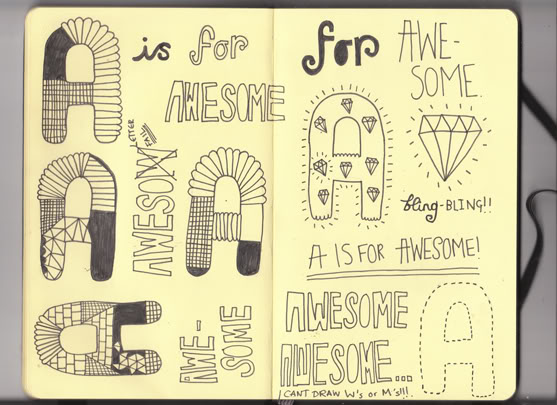 A is for
AWESOME
LETTER
FAIL
AWESOM
A
A
A
AWE-
SOME
for AWE-
SOME.
A
bling-BLING!!
A IS FOR AWESOME!
AWESOME
AWESOME...
I CANT DRAW W's or M's!!!
A